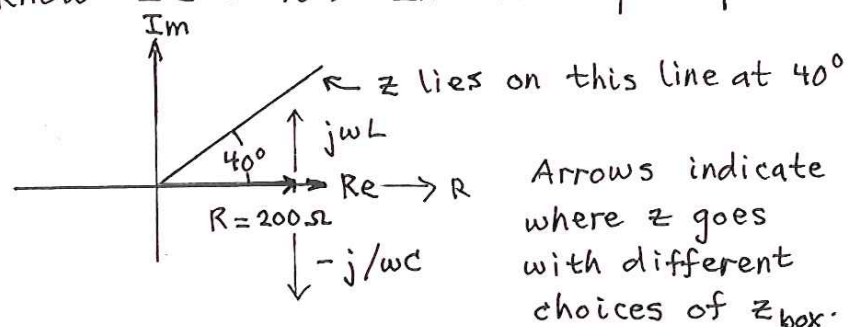 Im
z lies on this line at 40°
jωL
40°
Re → R
R = 200 Ω
- j/ωC
Arrows indicate
where z goes
with different
choices of z box.